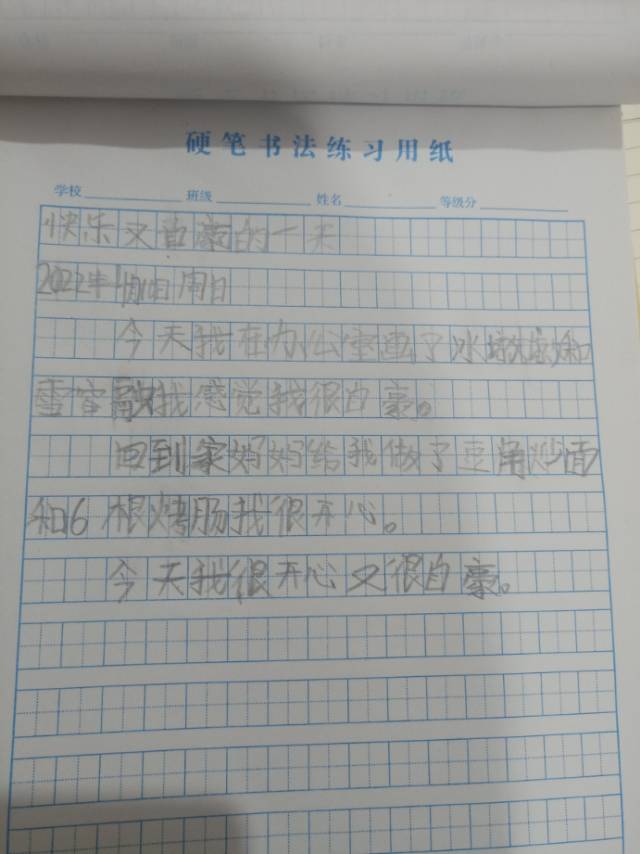 硬笔书法练习用纸
学校 班级 姓名 等级分
快乐又自豪的一天
2022年 周日
今天我在办公室画了冰墩墩和
雪容融我感觉我很自豪。
回到家妈妈给我做了豆角炒面
和6根烤肠我很开心。
今天我很开心又很自豪。